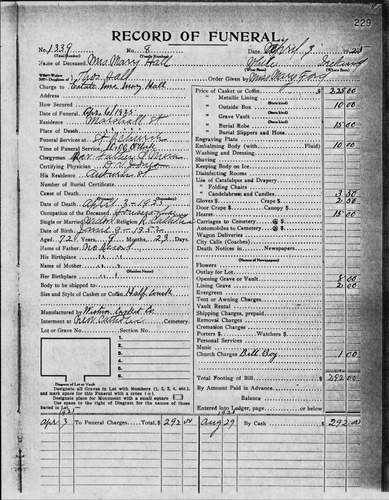 229
RECORD OF FUNERAL
No. 1339 No. 8 Date April 3 1925
(Total Number) (Yearly Number)
Name of Deceased Mrs Mary Hall White
(What Race) (Where Born)
Wife's-Widow's Son-Daughter of Thos Hall Order Given by Miss Mary
Charge to Estate Mrs Mary Hall
Address
How Secured
Date of Funeral Apr 6/1925
Residence Marshall St
Place of Death
Funeral Services at
Time of Funeral Service 10:00 O'Clock
Clergyman Rev. Father
Certifying Physician
His Residence
Number of Burial Certificate
Cause of Death
Date of Death April 3 - 1925
Occupation of the Deceased
Single or Married Religion
Date of Birth
Aged 72 Years 9 Months 23 Days
Name of Father
His Birthplace
Name of Mother
(Maiden Name)
Her Birthplace
Body to be shipped to
Size and Style of Casket or Coffin Half Couch
Manufactured by Casket Co
Interment at Cemetery
Lot or Grave No. Section No.
Diagram of Lot or Vault
Designate all Graves in Lot with Numbers (1, 2, 3, 4, etc.)
and mark space for this Funeral with a cross (+)
Designate place for Monument with a small square
Use space to the right of Diagram for the names of those
buried in Lot.
Price of Casket or Coffin $ 225.00
" Metallic Lining
" Outside Box 10 00
" Grave Vault
" Burial Robe 15 00
" Burial Slippers and Hose
Engraving Plate
Embalming Body (with Fluid) 10 00
Washing and Dressing
Shaving
Keeping Body on Ice
Disinfecting Rooms
Use of Catafalque and Drapery
" Folding Chairs
" Candelabrum and Candles 3 50
Gloves $ Crape $ 2 50
Door Crape $ Canopy $
Hearse 15 00
Carriages to Cemetery @ $
Automobiles to Cemetery @ $
Wagon Deliveries
City Calls (Coaches)
Death Notices in Newspapers
(Names of Newspapers)
Flowers
Outlay for Lot
Opening Grave or Vault 8 00
Lining Grave 2 00
Evergreen
Tent or Awning Charges
Vault Rental
Shipping Charges, prepaid
Removal Charges
Cremation Charges
Porters $ Watchers $
Personal Services
Music
Church Charges Bell Boy 1 00
Total Footing of Bill $ 292 00
By Amount Paid in Advance
Balance
Entered into Ledger, page or below
1925 1925
Apr 3 To Funeral Charges. Total $ 292 00 Aug 29 By Cash $ 292 00